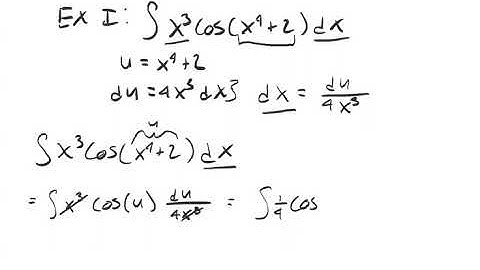 Ex I: ∫ x³cos(x⁴+2) dx
u = x⁴+2
du = 4x³dx} dx = du/4x³
u
∫x³cos(x⁴+2) dx
= ∫x³ cos(u) du/4x³ = ∫¼cos